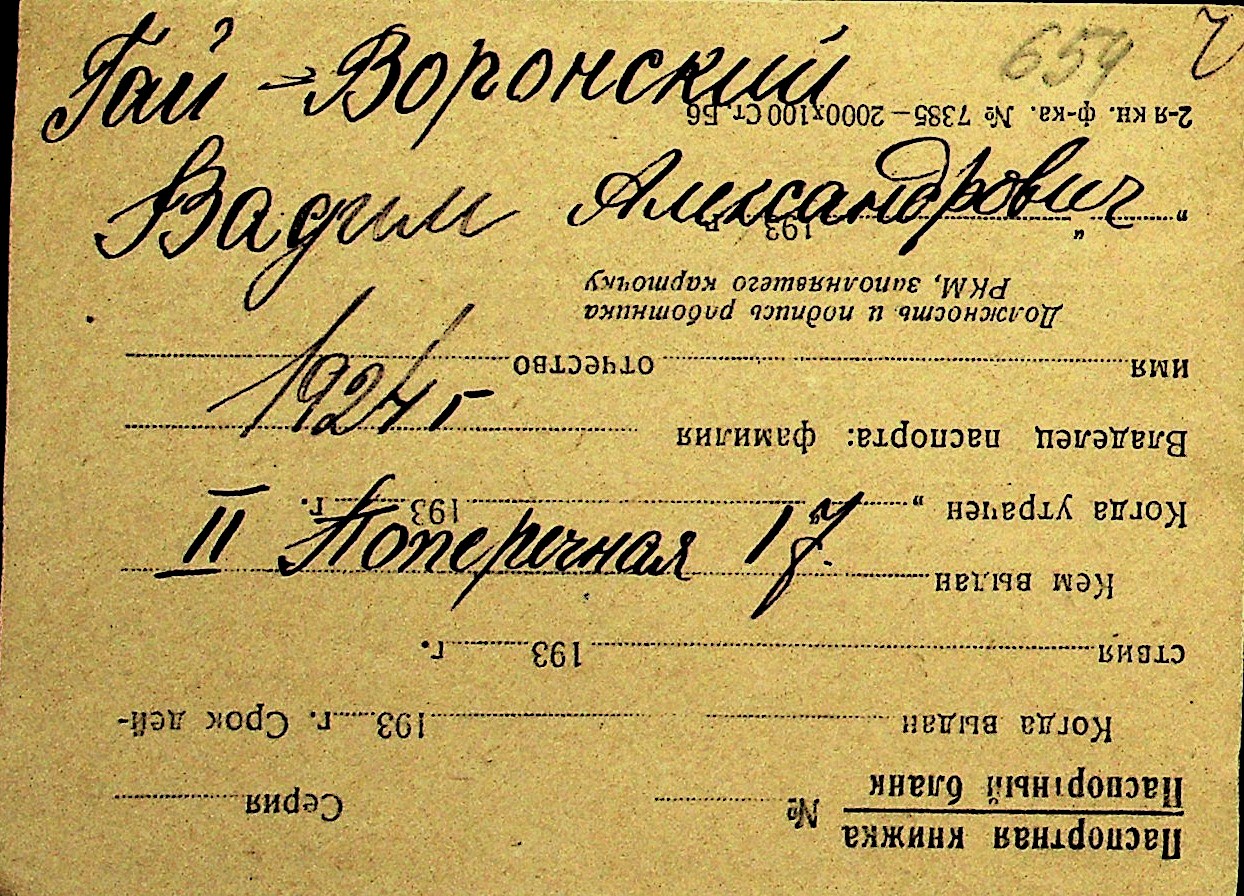 654
Гай-Воронский
Вадим Александрович
1924 г
II Поперечная 17.
Паспортная книжка
Паспортный бланк
№ Серия
Когда выдан 193 г. Срок дей-
ствия 193 г.
Кем выдан
Когда утрачен „ “ 193 г.
Владелец паспорта: фамилия
имя отчество
Должность и подпись работника
РКМ, заполнявшего карточку
„ “ 193 г.
2-я кн. ф-ка. № 7385—2000х100 Ст. Б6